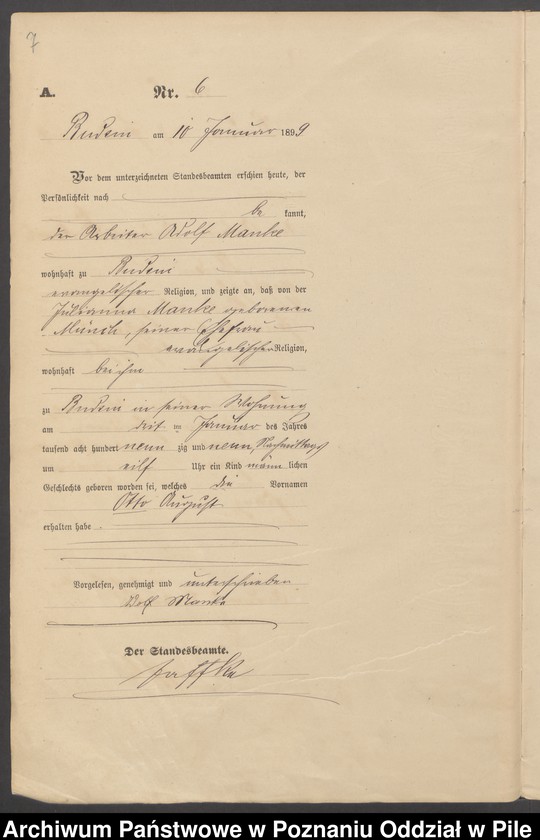 7
A. Nr. 6
am 10 Januar 1899
Vor dem unterzeichneten Standesbeamten erschien heute, der
Persönlichkeit nach
be kannt,
der Arbeiter Adolf Manke
wohnhaft zu
evangelischer Religion, und zeigte an, daß von der
Julianna Manke geborenen
Münch, seiner Ehefrau
evangelischer Religion,
wohnhaft bei ihm
zu in seiner Wohnung
am im Januar des Jahres
tausend acht hundert neun zig und neun, Nachmittags
um eilf Uhr ein Kind männ lichen
Geschlechts geboren worden sei, welches die Vornamen
Otto August
erhalten habe
Vorgelesen, genehmigt und unterschrieben
Adolf Manke
Der Standesbeamte.
Archiwum Państwowe w Poznaniu Oddział w Pile